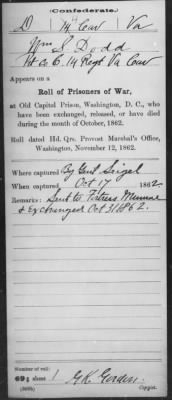 (Confederate.)
D 14 Cav Va
Wm S. Dodd
Pvt Co C. 14 Regt Va Cav
Appears on a
Roll of Prisoners of War,
at Old Capitol Prison, Washington, D. C., who
have been exchanged, released, or have died
during the month of October, 1862.
Roll dated Hd. Qrs. Provost Marshal's Office,
Washington, November 12, 1862.
Where captured By Genl Sigel
When captured Oct 17, 1862.
Remarks: Sent to Fortress Monroe
& Exchanged Oct 31 1862.
Number of roll:
69; sheet 1
G.R. Gordon
Copyist.